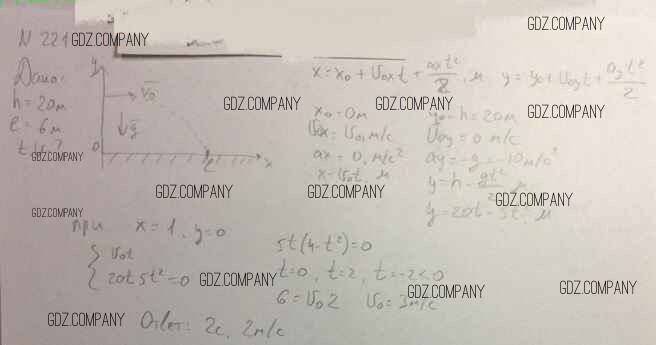 GDZ.COMPANY
N 221 GDZ.COMPANY
Дано:
h = 20м
l = 6м
GDZ.COMPANY
y
V₀
g
0
x
x = x₀ + V₀ₓt + aₓt²/2, м y = y₀ + V₀yt + ayt²/2
GDZ.COMPANY GDZ.COMPANY GDZ.COMPANY
x₀ = 0м y₀ = h = 20м
V₀x = V₀, м/с V₀y = 0 м/с
ax = 0, м/с² ay = -g = -10 м/с²
x = V₀t, м y = h - gt²/2, м
GDZ.COMPANY GDZ.COMPANY GDZ.COMPANY
y = 20t - 5t², м
GDZ.COMPANY
при x = 1, y = 0
{ V₀t
20t 5t² = 0 GDZ.COMPANY
5t(4-t²) = 0
t=0, t=2, t=-2<0
6 = V₀2 V₀ = 3м/с
GDZ.COMPANY GDZ.COMPANY
GDZ.COMPANY Ответ: 2с, 2м/с